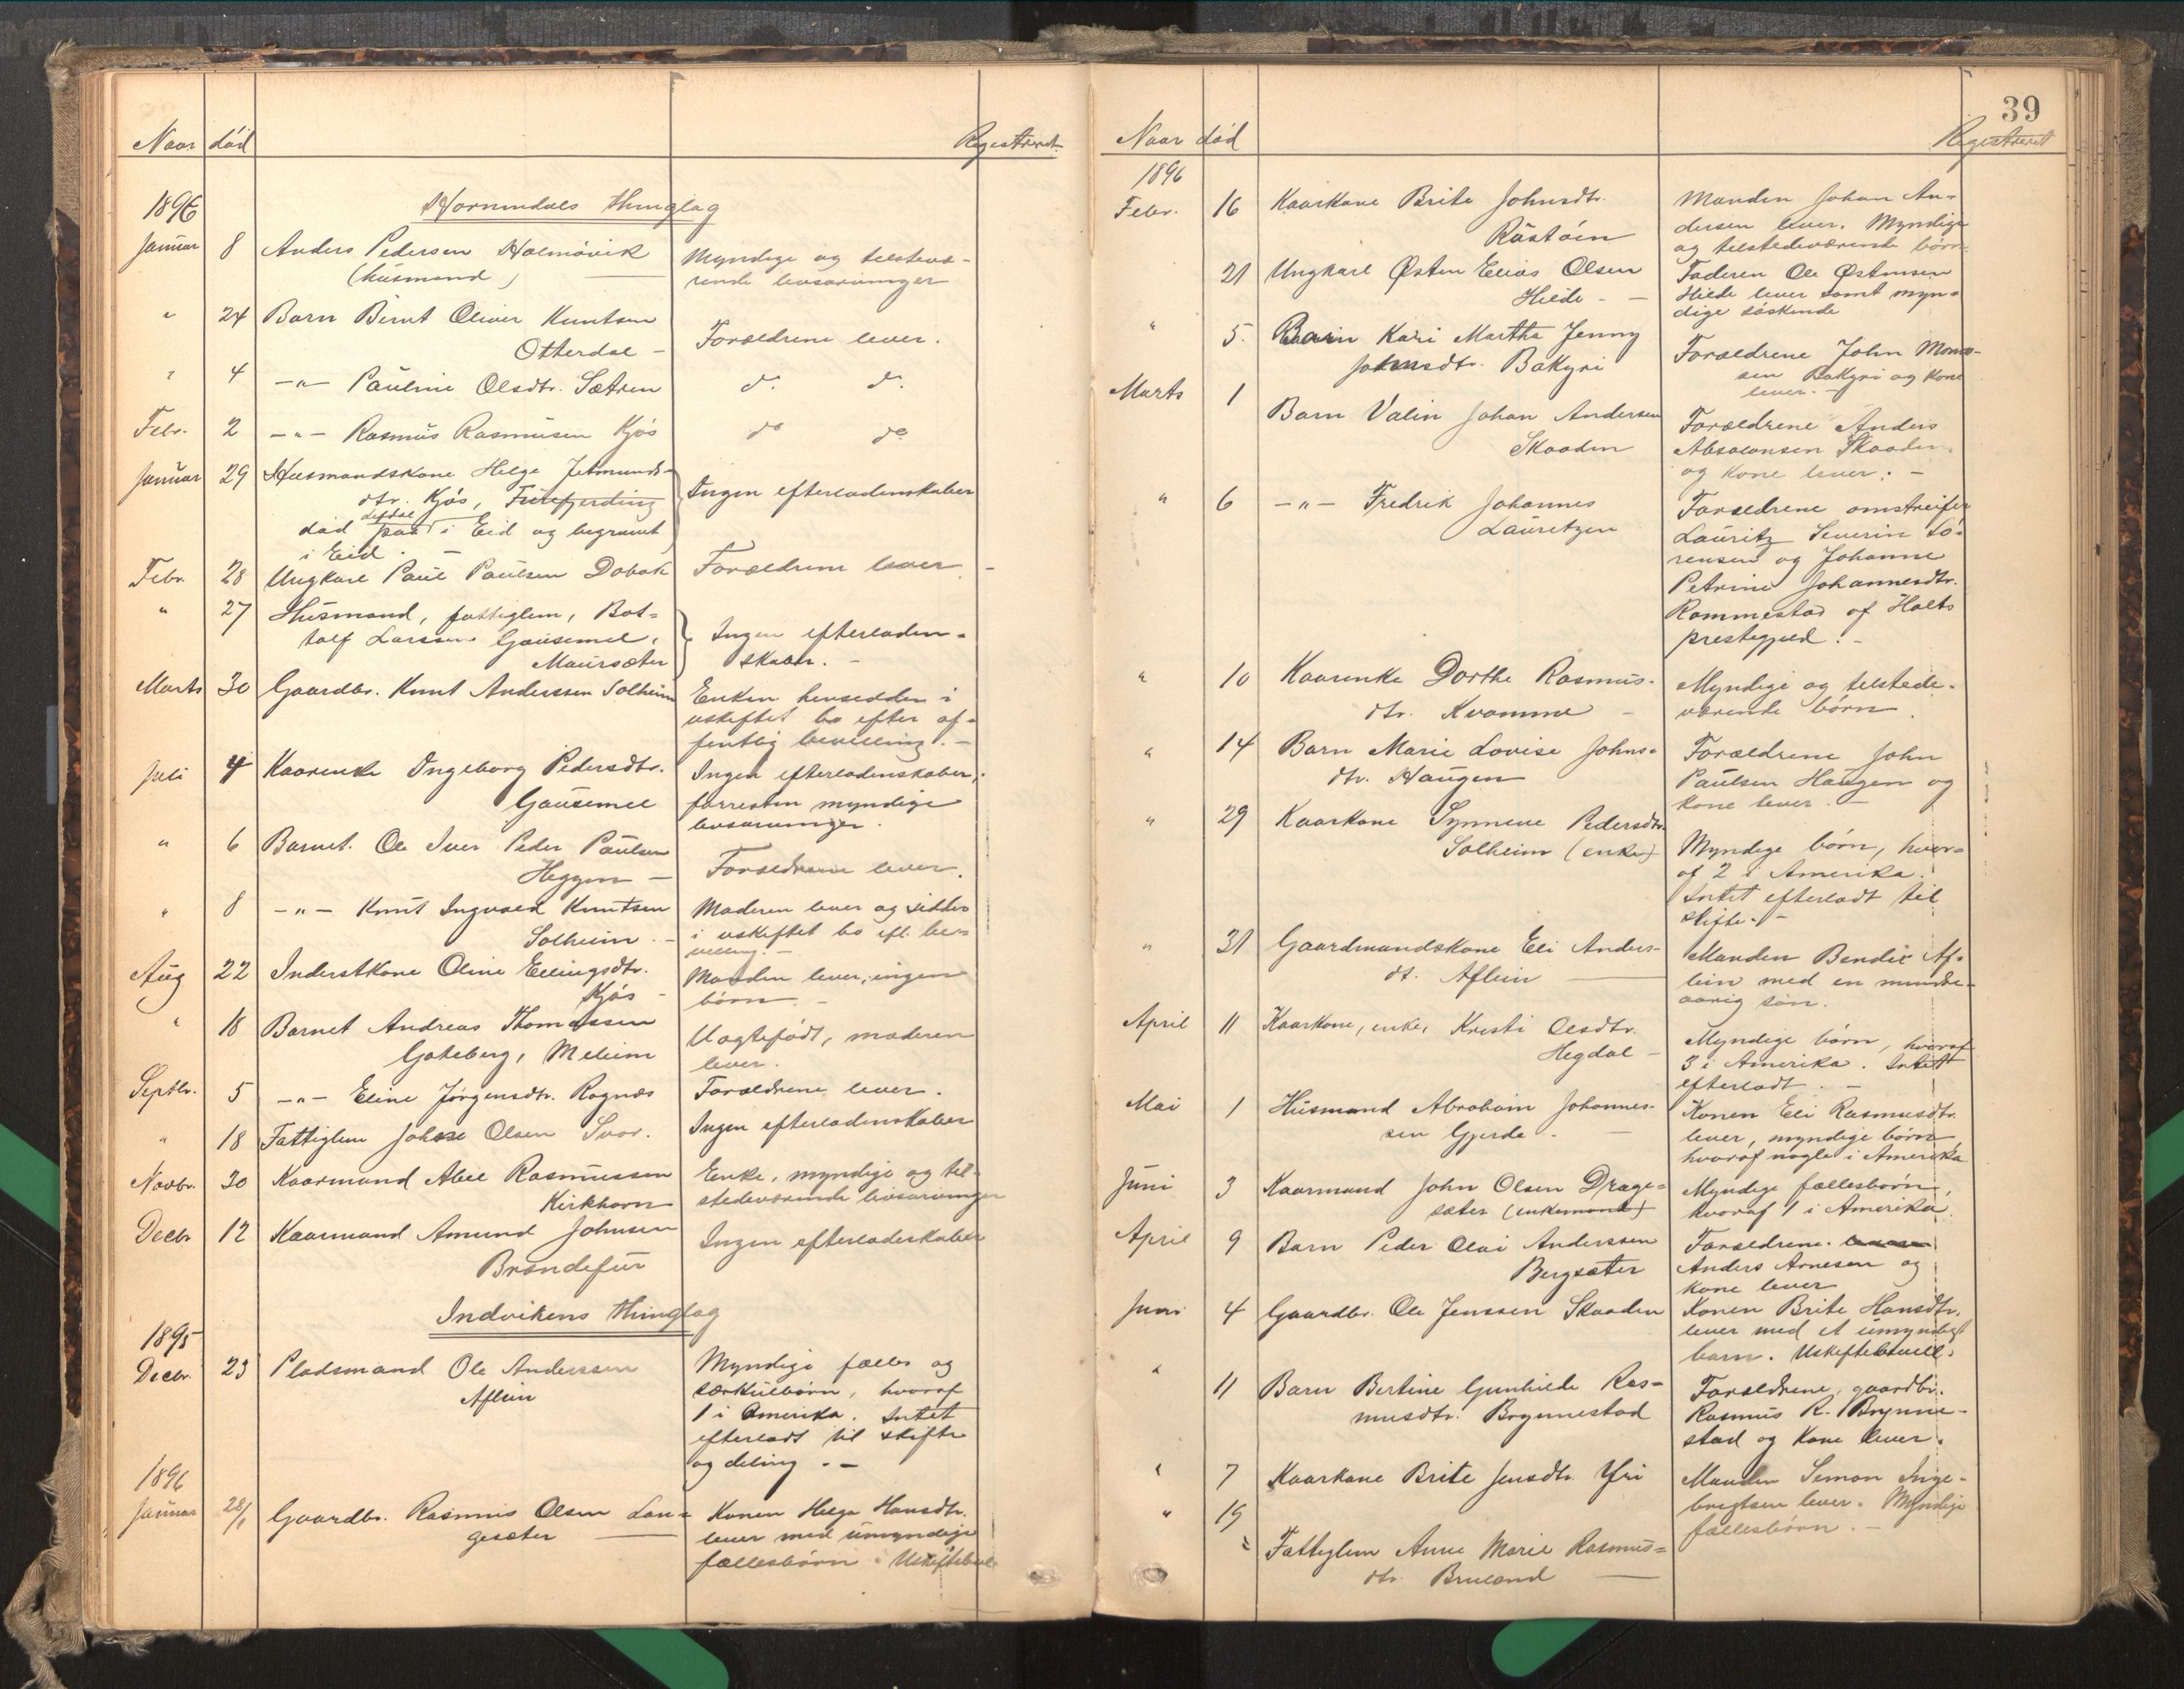 Naar død
Registreret
1896
Hornindals thinglag
Januar 8 Anders Pedersen Holmøvik
(husmand)
Myndige og tilstevæ-
rende livsarvinger
" 24 Barn Bernt Oliver Knutsen
Otterdal -
Forældrene lever.
" 4 -"- Pauline Olsdtr. Sætren
do do
Febr. 2 -"- Rasmus Rasmusen Kjøs
do do
Januar 29 Husmandskone Helge Jetmunds-
dtr. Kjøs,
død i Eid og begravet
i Eid. -
Ingen efterladenskaber
Febr. 28 Ungkarl Paul Paulsen Dobak
Forældrene lever. -
" 27 Husmand, fattiglem, Bot-
tolf Larssen Gausemel,
Maursæter
Ingen efterladen-
skaber. -
Marts 30 Gaardbr. Knut Anderssen Solheim
Enken hensidder i
uskiftet bo efter of-
fentlig bevilling. -
Juli 4 Kaarenke Ingeborg Pedersdtr.
Gausemel
Ingen efterladenskaber,
forresten myndige
livsarvinger.
" 6 Barnet Ole Iver Peder Paulsen
Heggen -
Forældrene lever.
" 8 -"- Knut Ingvald Knutsen
Solheim. -
Moderen lever og sidder
i uskiftet bo efl. bev-
illing. -
Aug 22 Inderstkone Oline Ellingsdtr.
Kjøs -
Manden lever, ingen
børn. -
" 18 Barnet Andreas Thomassen
Goteberg, Melheim
Uægtefødt, moderen
lever.
Septbr. 5 -"- Eline Jørgensdtr. Rognæs
Forældrene lever.
" 18 Fattiglem Johan Olsen Svor.
Ingen efterladenskaber
Novbr. 30 Kaarmand Abel Rasmussen
Kirkhorn
Enke, myndige og til-
stedeværende livsarvinger
Decbr 12 Kaarmand Amund Johnsen
Brendefur
Ingen efterladeskaber
Indvikens thinglag
1895
Decbr. 23 Pladsmand Ole Anderssen
Aflein
Myndige fælles og
særkulbørn, hvoraf
1 i Amerika. Intet
efterladt til skifte
og deling. -
1896
Januar 28/1 Gaardbr. Rasmus Olsen Lan-
gesæter
Konen Helge Hansdtr.
lever med umyndige
fællesbørn. Uskiftebevil
39
Naar død
Registreret
1896
Febr. 16 Kaarkone Brite Johnsdtr.
Rustøen
Manden Johan An-
dersen lever. Myndige
og tilstedeværende børn.
21 Ungkarl Østen Elias Olsen
Hilde - -
Faderen Ole Østensen
Hilde lever samt myn-
dige søskende
" 5. Barn Kari Martha Jenny
Johnsdtr. Bakyri
Forældrene John Mons-
sen Bakyri og kone
lever. -
Marts 1 Barn Valin Johan Andersen
Skaaden
Forældrene Anders
Absalonsen Skaaden
og kone lever. -
" 6 -"- Fredrik Johannes
Lauritzen
Forældrene omstreifer
Lauritz Severin Sö-
rensen og Johanne
Petrine Johannesdtr.
Rommestad af Holts
prestegjeld. -
" 10 Kaarenke Dorthe Rasmus-
dtr. Kvamme -
Myndige og tilstede-
værende børn.
" 14 Barn Marie Lovise Johns-
dtr. Haugen
Forældrene John
Paulsen Haugen og
kone lever. -
" 29 Kaarkone Synneve Pedersdtr.
Solheim (enke)
Myndige børn, hvor-
af 2 i Amerika.
Intet efterladt til
skifte. -
" 31 Gaardmandskone Eli Anders-
dt. Aflein
Manden Bendik Af-
lein med en minde-
aarig søn.
April 11 Kaarkone, enke, Kristi Olsdtr.
Hegdal -
Myndige børn, hvoraf
3 i Amerika. Intet
efterladt. -
Mai 1 Husmand Abraham Johannes-
sen Gjerde -
Konen Eli Rasmusdtr.
lever, myndige børn,
hvoraf nogle i Amerika
Juni 3 Kaarmand John Olsen Drage-
sæter (enkemand)
Myndige fællesbørn,
hvoraf 1 i Amerika.
April 9 Barn Peder Olai Anderssen
Bergsæter
Forældrene lever
Anders Arnesen og
kone lever
Juni 4 Gaardbr. Ole Jenssen Skaaden
Konen Brite Hansdtr.
lever med et umyndigt
barn. Uskiftebevill.
" 11 Barn Bertine Gunhilde Ras-
musdtr. Brynnestad
Forældrene, gaardbr.
Rasmus R. Brynne-
stad og kone lever.
" 7 Kaarkone Brite Jensdtr. Yri
Manden Semon Inge-
brigtsen lever. Myndige
fællesbørn. -
" 19
Fattiglem Anne Marie Rasmus-
dtr. Bruland